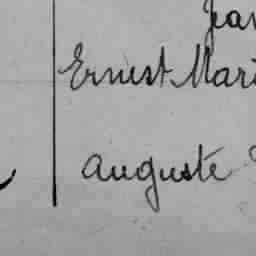 Jean
Ernest Mari
Auguste